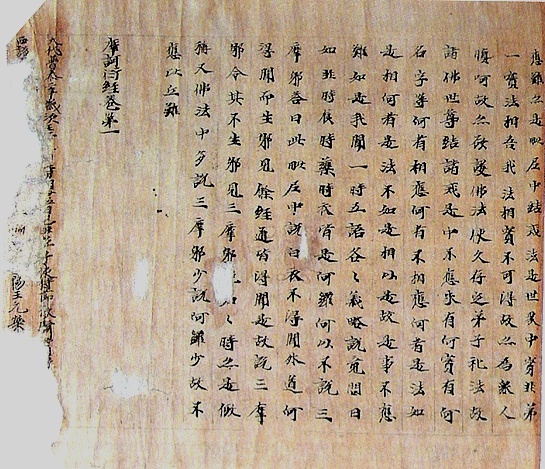 應難如是毗尼中結戒法是世界中實非第
一實法相吾我法相實不可得故亦為衆人
瞋呵故亦欲護佛法使久存定弟子礼法故
諸佛世尊結諸戒是中不應求有何實有何
名字等何者相應何者不相應何者是法如
是相何者是法不如是相以是故是事不應
難如是我聞一時五語各〻義略說竟問曰
如非時食時藥時衣皆是柯羅何以不說三
摩耶答曰此毗尼中說白衣不得聞外道何
得聞而生邪見餘經通皆得聞是故說三摩
耶令其不生邪見三摩耶時亦是假
稱又佛法中多說三摩耶少說柯羅少故不
應以立難
摩訶衍經卷第一
大代普泰二年歲次壬子
西諸陽王元榮